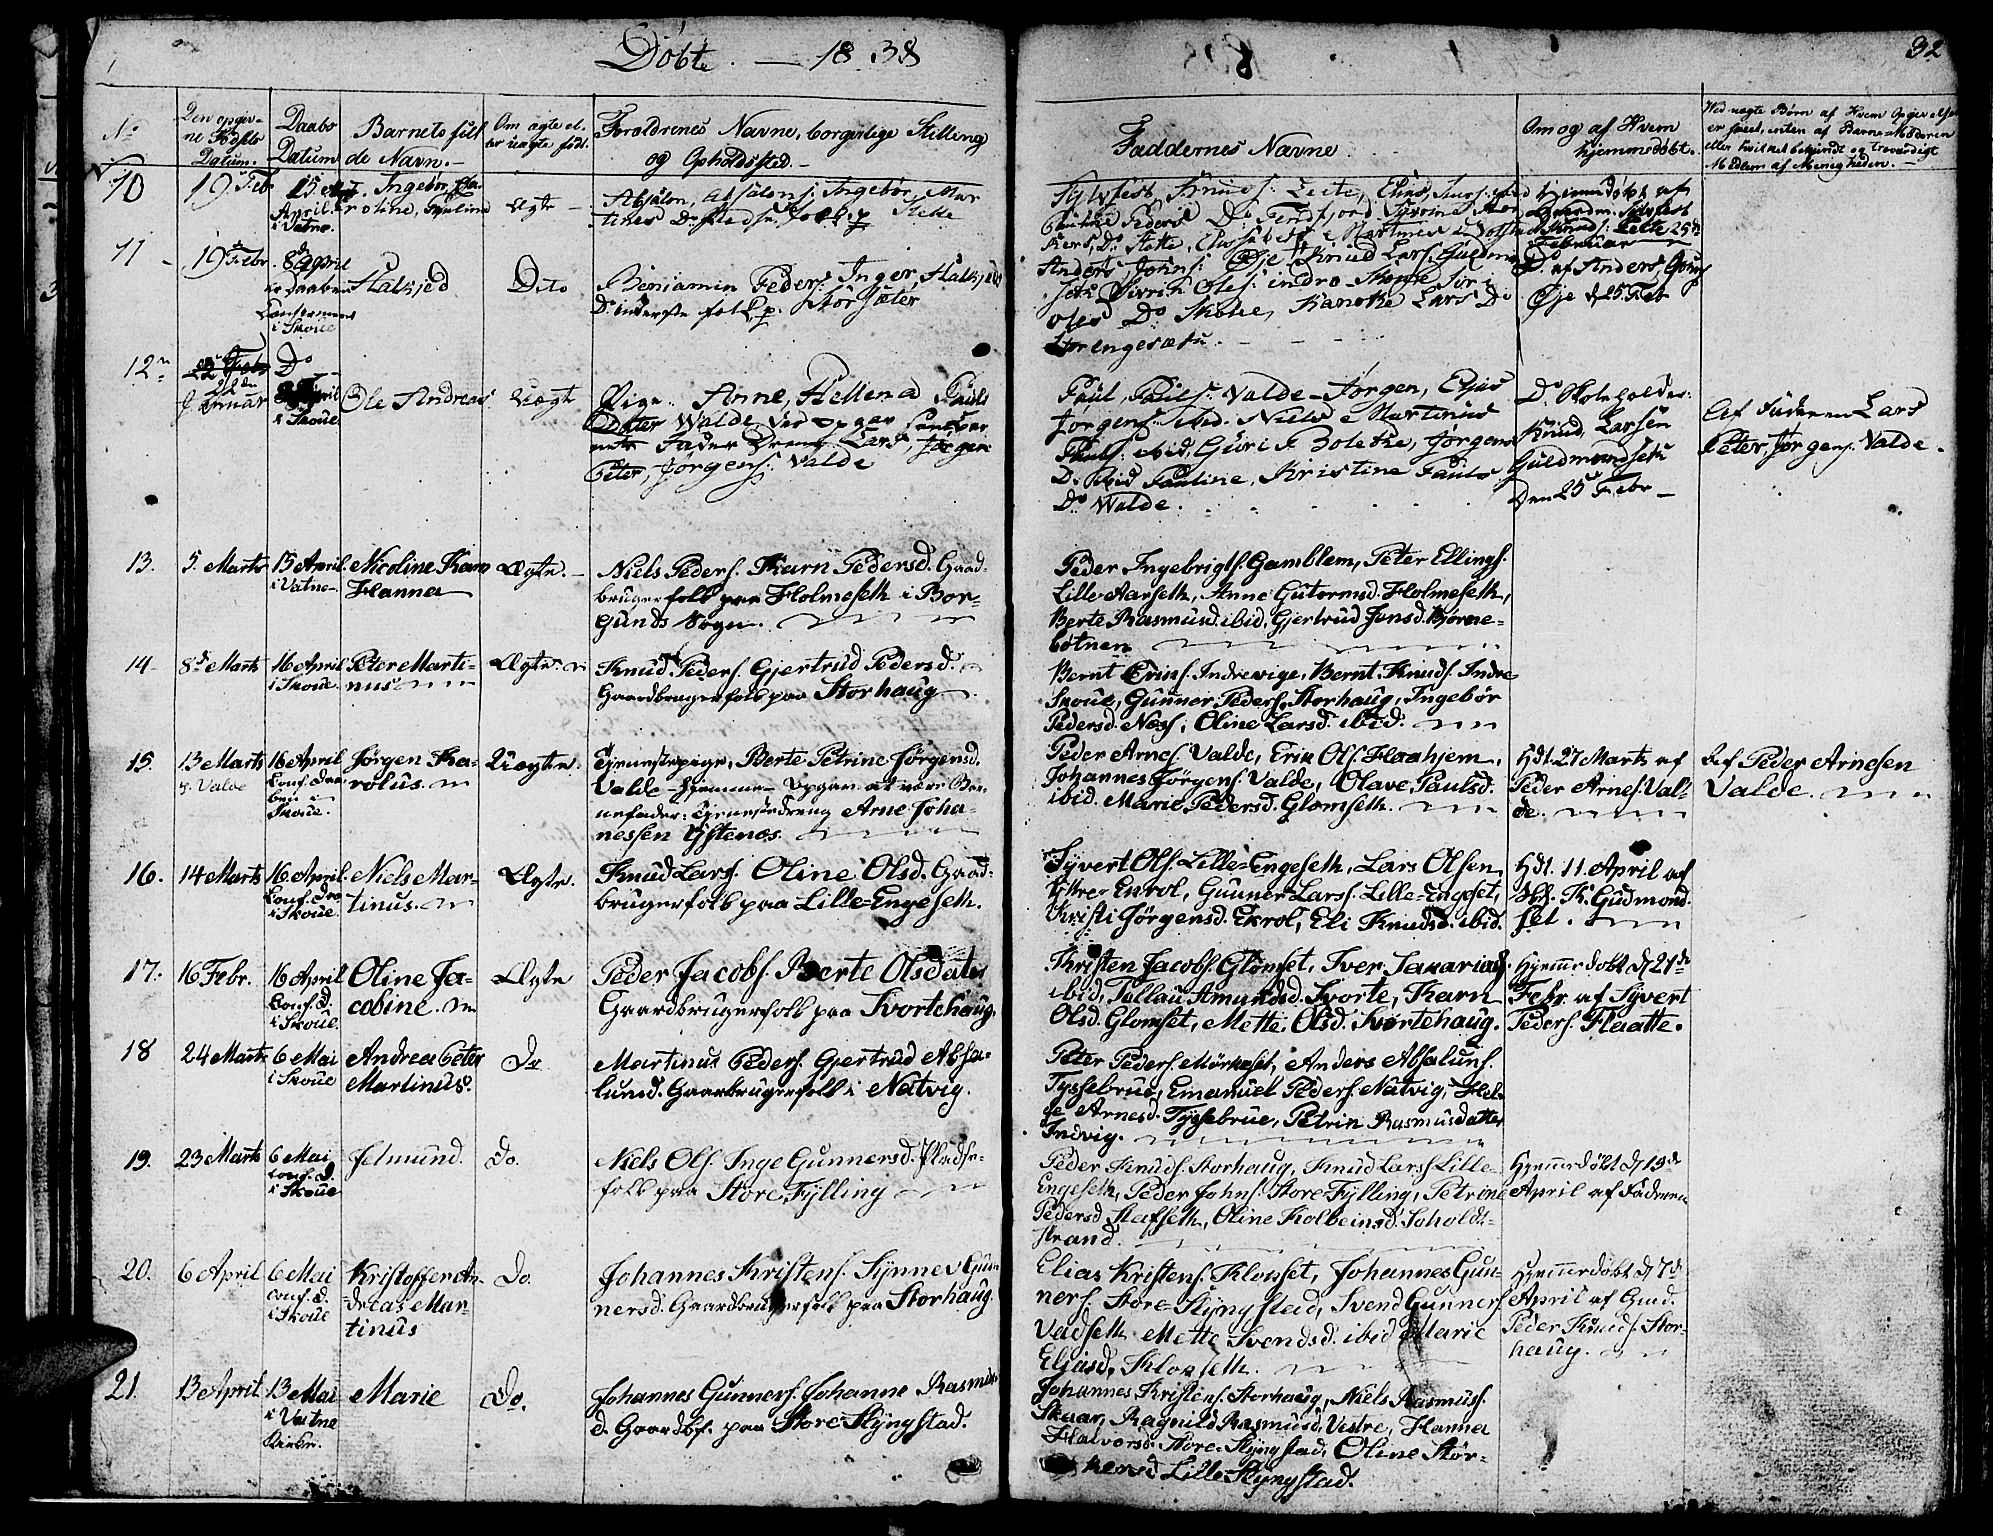 Döbte. — 1838
32
No
Den opgiv-
ne Födsels
Datum.
Daabs
Datum
Barnets fuld
de Navn.
Om ægte el-
ler uægte föd.
Foroldrenes Navne, borgerlige Stilling
og Opholdssted.
Faddernes Navne.
Om og af Hvem
hjemmedöbt.
Ved uægte Börn af Hvem Opgivelsen
er skeet, enten af Barne-Moderen
eller hvilket bekjendt og troværdigt
Medlem af Menigheden.
10
19 Feb
15
April.
i Vatne
Ingebör,
roline, Pauline
Ægte
Absalon, Absalons: Ingebör, Mar
tines
Sylfest Knuds: Leite, Elias,
Hjemmedöbt af
Knud: Leite 25
Februar
11
19 Febr.
8 April
i Skoue
Malkjed
Deto
Beniamin Peders: Inger,
D. inderste folk p. Storsæter
Anders, Johns: Öje Knud Lars: Guldmun
seth Sivrik Oles: indre Skoue Siri
Oles D. Skoue, Kanotke Lars D.
Storengesætu.
D. af Anders,
Öje d 25 Feb
12
22
Januar
Do
April
i Skoue
Ole Andreas
Uægt
Pige. Anne, Hellena Pauls
Dater Walde, der opgav
Fader Dreng Lars,
Peter, Jörgens: Valde
Paul, Pauls: Valde - Jorgen, Eljas
Jörgens: ibid. Niels Martinus
Pauls: ibid, Guri Boletke, Jörgens
D. ibid Pauline, Kristine Pauls
D. Walde.
D. Skoleholder:
Knud Larsen
Guldmundsetu
Den 25 Febr
Af Faderen Lars
Peter, Jörgens: Valde.
13.
5. Marts
15 April
i Vatne
Nicoline Karn
Hanna
Ægte.
Niels Peders. Karn Pedersd. Gaad-
brugerfolk paa Holmeseth i Bor-
gunds Sogn.
Peder Ingebrigts. Gamblem, Peter Ellings.
Lille-Aarseth, Anne Gutormsd. Holmeseth,
Berte Rasmusd. ibid, Gjertrud Jonsd. Björne-
bötnen
14
8de Marts
16 April
i Skoue.
Peter Marti-
nus
Ægte.
Knud Peders. Gjertrud Pedersd.
Gaardbrugerfolk paa Storhaug
Bernt Eriks. Indrevige, Bernt Knuds. Indre-
Skoue, Gunnor Peders. Storhaug, Ingebör
Pedersd. Næss, Oline Larsd. ibid.
15.
13 Marts
p. Valde
16 April
Conf. Daa
ben i
Skoue.
Jörgen Ka-
rolus.
Uægte.
Tjenestepige, Berte Petrine Jörgensd.
Valde - hjemme - Opgav at være Bar-
nefader: Tjenestedreng Arne Joha-
nessen Ystenæs.
Peder Arnes. Valde, Erik Ols. Flaahjem,
Johannes Jörgens. Valde, Olave Paulsd.
ibid. Marie Pedersd. Glomseth.
Hdt. 27 Marts af
Peder Arnes. Val-
de.
Af Peder Arnesen
Valde.
16.
14 Marts
16 April
Conf. Daa
i Skoue.
Niels Mar-
tinus.
Ægte.
Knud Lars. Oline Olsd. Gaad-
brugerfolk paa Lille-Engeseth.
Syvert Ols. Lille-Engeseth, Lars Olsen
Yttre-Ekrol, Gunner Lars. Lille-Engeset,
Kristi Jörgensd. Ekrol, Eli Knudsd. ibid.
Hdt. 11. April af
K. Gudmond-
set.
17.
16 Febr.
16 April
Conf. d.
i Skoue.
Oline Ja-
cobine.
Ægte
Peder Jacobs. Berte Olsdater
Gaardbrugerfolk paa Svortehaug.
Kristen Jacobs. Glomset, Iver Sakariad.
ibid, Tallau Amundsd. Svorte, Karn
Olsd. Glomset, Mette Olsd. Svortehaug.
Hjemmedöbt d 21de
Febr. af Syvert
Peders. Flaatte.
18
24 Marts
6 Mai
i Skoue
Andreas Peter
Martinus.
Do
Martinus Peders. Gjertrud Absa-
lumd. Gaarbrugerfolk i Natvig.
Peter Peders. Mörkeset, Anders Absaluns.
Tyssebrue, Emanuel Peders. Natvig, Hel-
le Arnesd. Tyssebrue, Petrin Rasmusdatter
Indvig.
19.
23 Marts
6 Mai
conf. d.
i Skoue
Jelmund.
Do.
Niels Ols. Inge Gunnersd. Pladse-
folk paa Store-Fylling
Peder Knuds. Storhaug, Knud Lars. Lille-
Engeseth, Peder Johns. Store-Fylling, Petrine
Pedersd. Stafseth, Oline Kolbeinsd. Soholdt-
strand.
Hjemmedöbt d 13de
April af Faderen
20.
6 April
6 Mai
conf. d.
i Skoue
Kristoffer An-
dreas Mar-
tinus
Do.
Johannes Kristens. Synnev Gun
nersd. Gaardbrugerfolk paa Storhaug.
Elias Kristens. Klokset, Johannes Gun-
ners. Store-Slyngstad, Svend Gunners
Vadseth Mette Svendsd. ibid Marie
Eljasd. Klokseth.
Hjemmedöbt d 7de
April af Gmd.
Peder Knuds. Stor-
haug.
21
13 April
13 Mai
i Vatne
Kirke.
Marie
Do.
Johannes Gunners. Johanne Rasmus
d. Gaardbf. paa Store Slyngstad.
Johannes Kristens. Storhaug, Niels Rasmuss.
Skaar, Ragnild Rasmusd. Vestre, Hanna
Halvorsd. Store-Slyngstad, Oline Stör-
kersd Lille-Slyngstad.